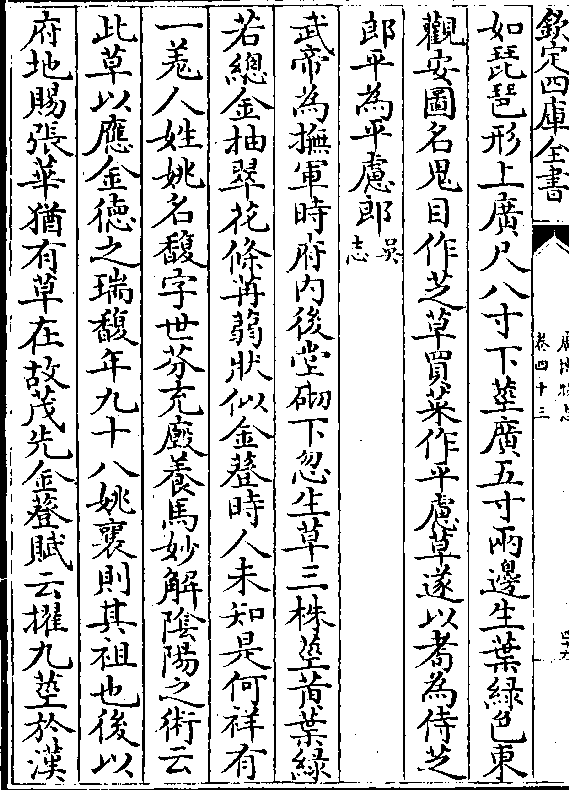 欽定四庫全書
廣博物志
卷四十三
如琵琶形上廣尺八寸下莖廣五寸兩邊生葉緑色東
觀安圖名鬼目作芝草買菜作平慮草遂以耉為侍芝
郎平為平慮郎吳志
武帝為撫軍時府内後堂砌下忽生草三株莖黄葉緑
若總金抽翠花條苒蒻狀似金䔲時人未知是何祥有
一羌人姓姚名馥字世芬充廐養馬妙解隂陽之術云
此草以應金徳之瑞馥年九十八姚襄則其祖也後以
府地賜張華猶有草在故茂先金䔲賦云擢九莖於漢